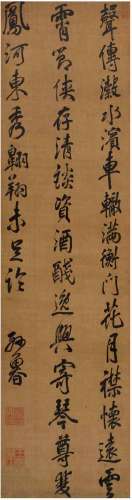 聲傳瀔水濱車轍滿衡門花月襟懷遠雲
霄節俠存清談資酒醆逸興寄琴尊薛
鳳河東秀翱翔未足論